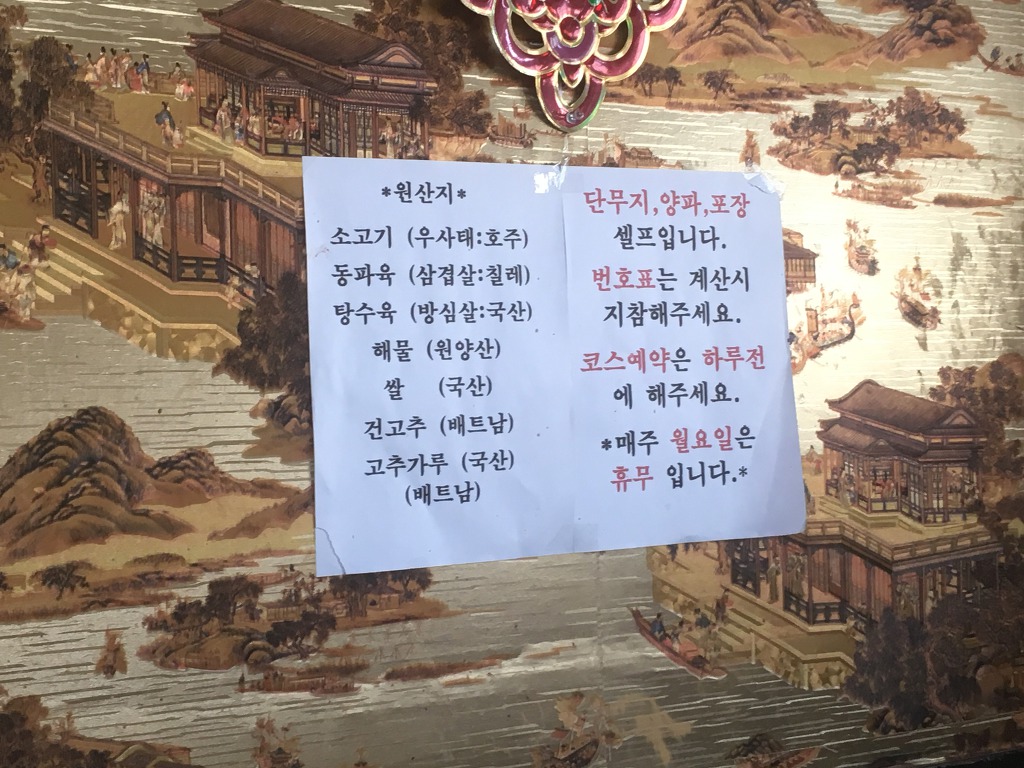 *원산지*
소고기 (우사태:호주)
동파육 (삼겹살:칠레)
탕수육 (방심살:국산)
해물 (원양산)
쌀 (국산)
건고추 (배트남)
고추가루 (국산)
(배트남)
단무지,양파,포장
셀프입니다.
번호표는 계산시
지참해주세요.
코스예약은 하루전
에 해주세요.
*매주 월요일은
휴무 입니다.*